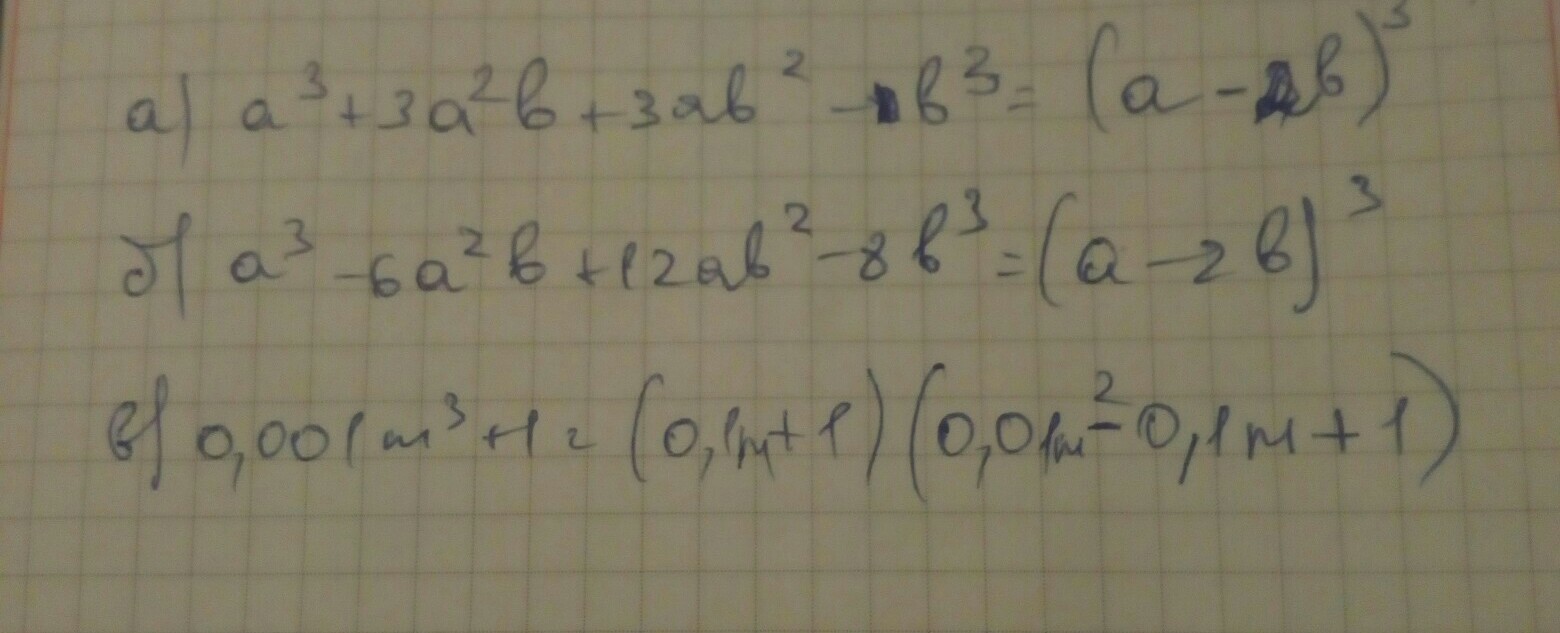 а) a³+3a²b+3ab²-b³=(a-b)³
б) a³-6a²b+12ab²-8b³=(a-2b)³
в) 0,001m³+1=(0,1m+1)(0,01m²-0,1m+1)